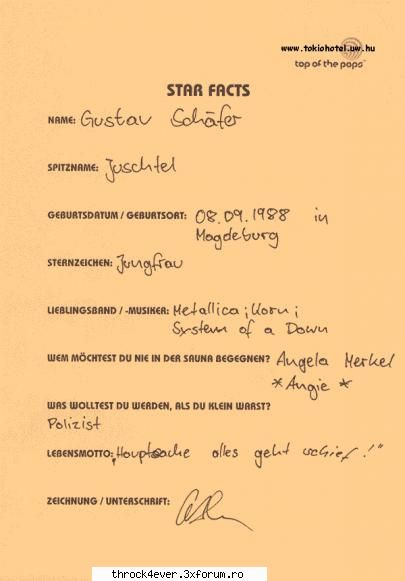 www.tokiohotel.uw.hu
top of the pops
STAR FACTS
NAME: Gustav Schäfer
SPITZNAME: Juschtel
GEBURTSDATUM / GEBURTSORT: 08.09.1988 in
Magdeburg
STERNZEICHEN: Jungfrau
LIEBLINGSBAND / -MUSIKER: Metallica; Korn;
System of a Down
WEM MÖCHTEST DU NIE IN DER SAUNA BEGEGNEN? Angela Merkel
*Angie*
WAS WOLLTEST DU WERDEN, ALS DU KLEIN WARST?
Polizist
LEBENSMOTTO: „Hauptsache alles geht schief!"
ZEICHNUNG / UNTERSCHRIFT:
throck4ever.3xforum.ro